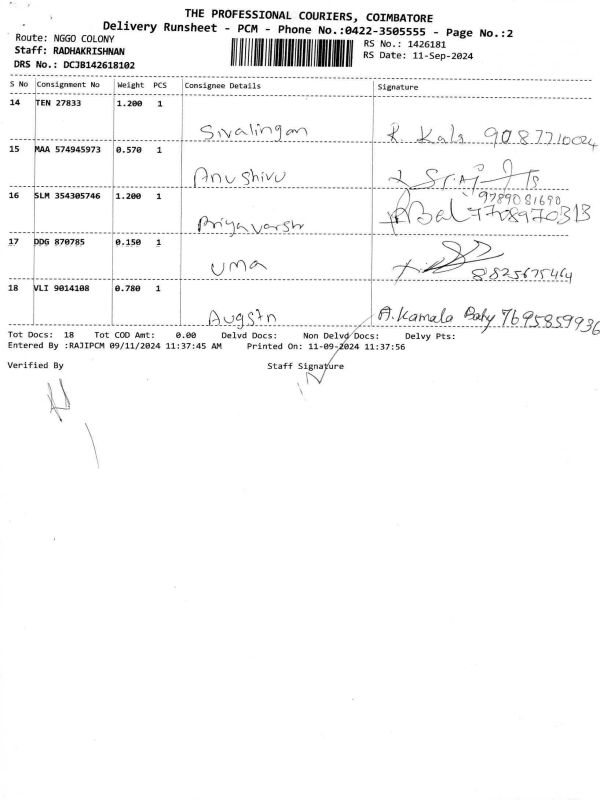 THE PROFESSIONAL COURIERS, COIMBATORE
Delivery Runsheet - PCM - Phone No.:0422-3505555 - Page No.:2
Route: NGGO COLONY
RS No.: 1426181
Staff: RADHAKRISHNAN
RS Date: 11-Sep-2024
DRS No.: DCJB142618102
S No Consignment No Weight PCS Consignee Details Signature
14 TEN 27833 1.200 1
Sivalingam R Kala 9087710024
15 MAA 574945973 0.570 1
Anushivu
16 SLM 354305746 1.200 1 9789081690
Priyavarsh Bal 7708970313
17 DDG 870785 0.150 1
uma 8825675464
18 VLI 9014108 0.780 1
Augstn A.Kamala Baby 7695859936
Tot Docs: 18 Tot COD Amt: 0.00 Delvd Docs: Non Delvd Docs: Delvy Pts:
Entered By :RAJIPCM 09/11/2024 11:37:45 AM Printed On: 11-09-2024 11:37:56
Verified By Staff Signature